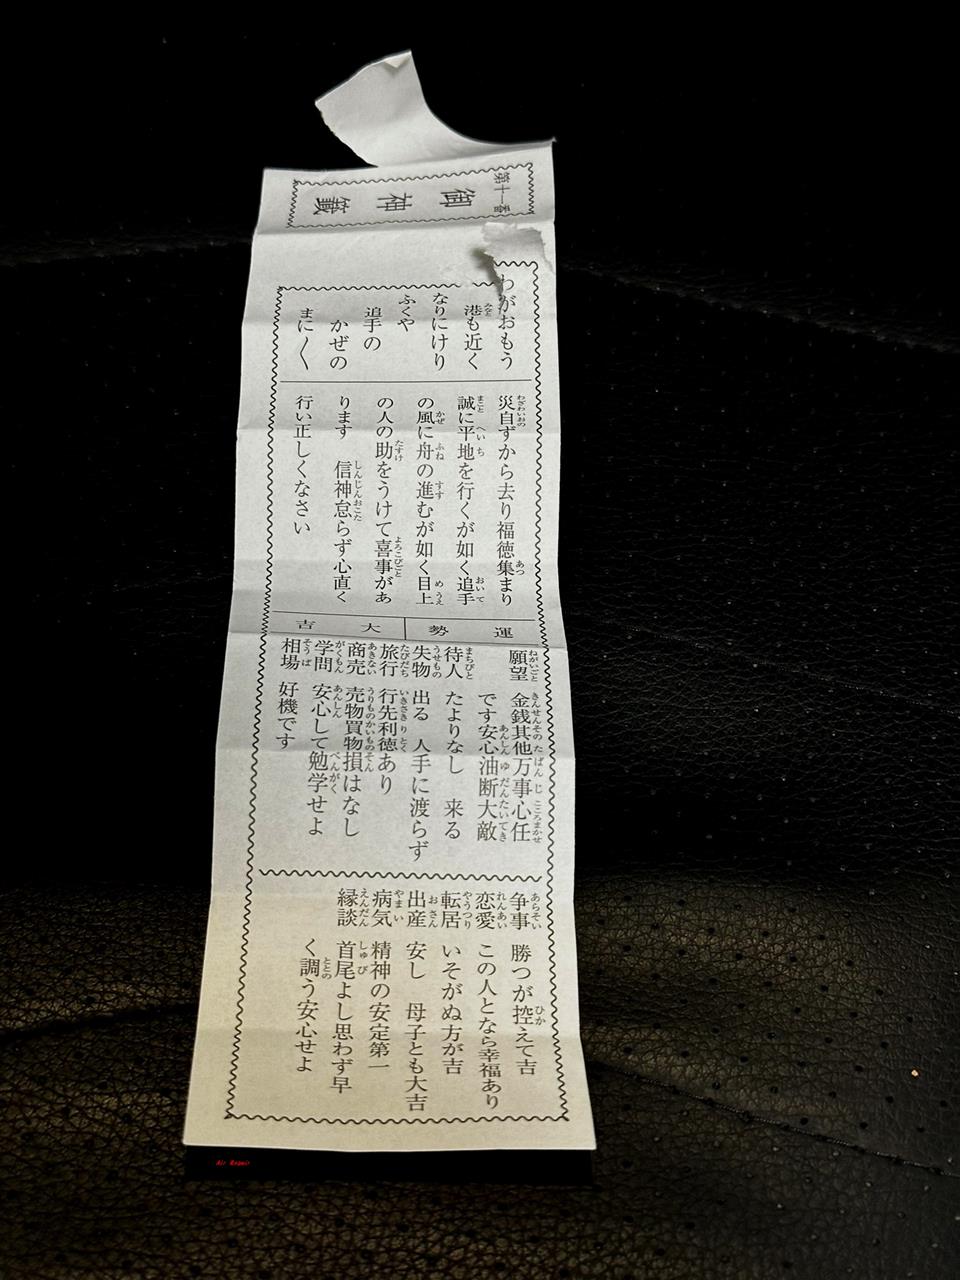 第十一番
御神籤
わがおもう
港も近く
なりにけり
ふくや
追手の
かぜの
まに〱
災自ずから去り福徳集まり
誠に平地を行くが如く追手
の風に舟の進むが如く目上
の人の助をうけて喜事があ
ります 信神怠らず心直く
行い正しくなさい
運勢 大吉
願望 金銭其他万事心任
です安心油断大敵
待人 たよりなし 来る
失物 出る 人手に渡らず
旅行 行先利徳あり
商売 売物買物損はなし
学問 安心して勉学せよ
相場 好機です
争事 勝つが控えて吉
恋愛 この人となら幸福あり
転居 いそがぬ方が吉
出産 安し 母子とも大吉
病気 精神の安定第一
縁談 首尾よし思わず早
く調う安心せよ
Air Repair